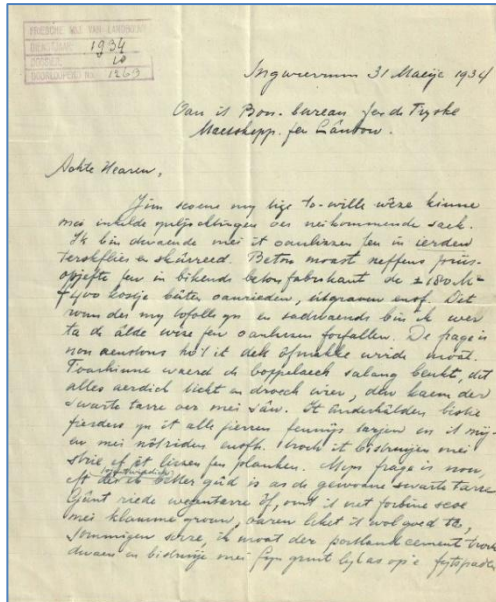 FRIESCHE MIJ VAN LANDBOUW
1934
DOSSIER 10
DOORLOOPEND No. 1263
Ingwierrum 31 Maeije 1934
Oan it Bou-bureau fen de Fryske
Maetskepp. fen Lânbou.
Achte Hearen,
Jim scoene my tige to-wille wêze kinne
mei inkelde ynljochtingen oer neikommende saek.
Ik bin dwaende mei it oanlizzen fen in ierden
terskflier en skûrreed. Beton moast neffens priis-
opjefte fen in bikende betonfabrikant de ± 180 M²
f 400 kostje bûten oanrieden, útgraven ensf. Dit
wier des my tofolle en
ta de âlde wize fen oanlizzen forfallen. De frage is
nou ho't it dek ôfmakke wirde moat.
Foarhinne waerd de boppelaech salang beukt, dit
alles aerdich ticht en droech wier, den kaem der
swarte tarre oer mei sân. It ûnderhâlden bistie
fierders yn it alle jierren
en mei ensfh. troch it bistruijen mei
strie of it lizzen fen planken. Myn frage is nou,
ef better guod is as de gewoane swarte tarre
riede wegentarre of, omt it net forbine scoe
mei klamme groun, oaren liket it wol goed ta,
sommigen sizze, ik moat der portland cement troch
dwaen en bistruije mei fyn grint lyk as op 'e fytspaden